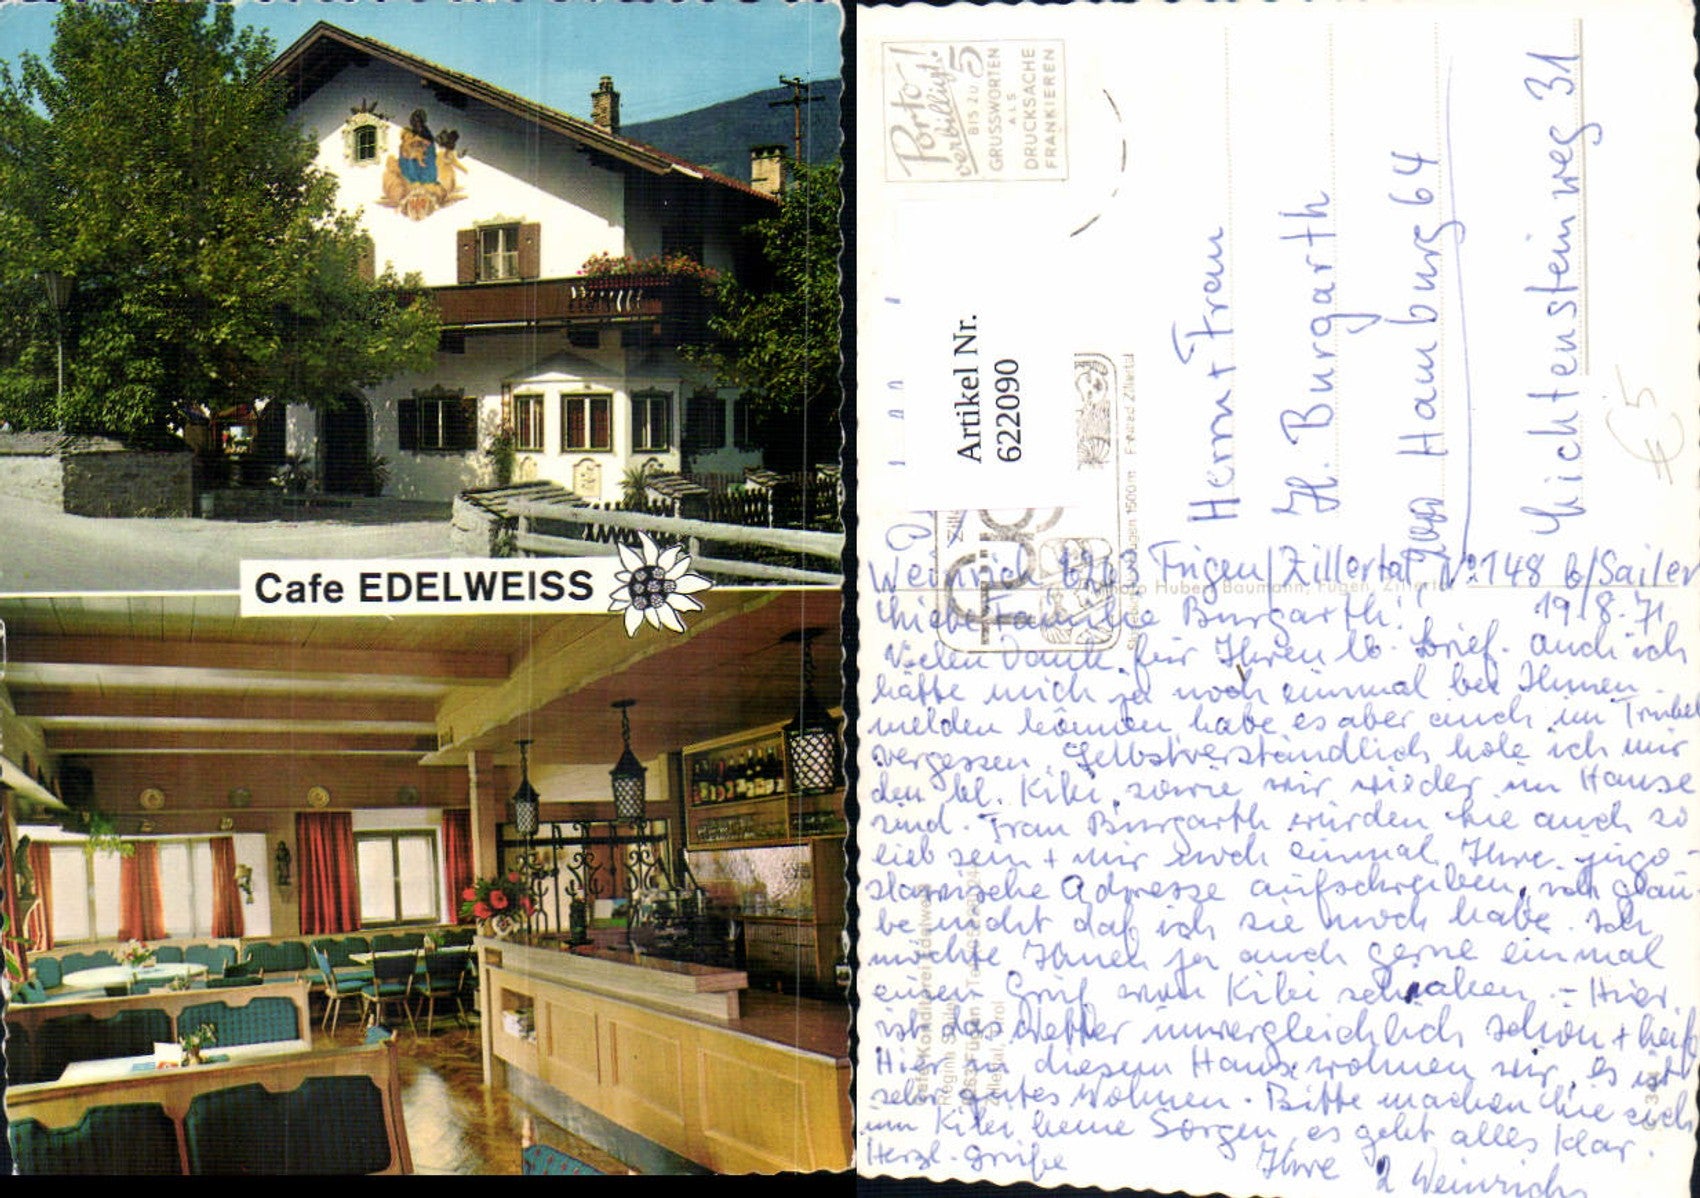 Cafe EDELWEISS
Porto!
verbilligt!
BIS ZU 5
GRUSSWORTEN
ALS
DRUCKSACHE
FRANKIEREN
Artikel Nr.
622090
€5
Herrn + Frau
H. Burgarth
2000 Hamburg 64
Lichtensteinweg 31
Weinrich 6263 Fügen/Zillertal No 148 b/Sailer
Liebe Familie Burgarth! 19.8.71
Vielen Dank für Ihren lb. Brief. Auch ich
hätte mich ja noch einmal bei Ihnen
melden können habe es aber auch im Trubel
vergessen. Selbstverständlich hole ich mir
den kl. Kiki, sowie wir wieder im Hause
sind. Frau Burgarth würden Sie auch so
lieb sein + mir noch einmal Ihre jugo-
slawische Adresse aufschreiben, ich glau-
be nicht daß ich sie noch habe. Ich
möchte Ihnen ja auch gerne einmal
einen Gruß von Kiki schicken. - Hier
ist das Wetter unvergleichlich schön + heiß
Hier in diesem Hause wohnen wir, es ist
sehr gutes Wohnen. Bitte machen Sie sich
um Kiki keine Sorgen, es geht alles klar.
Herzl. Grüße Ihre 2 Weinrichs